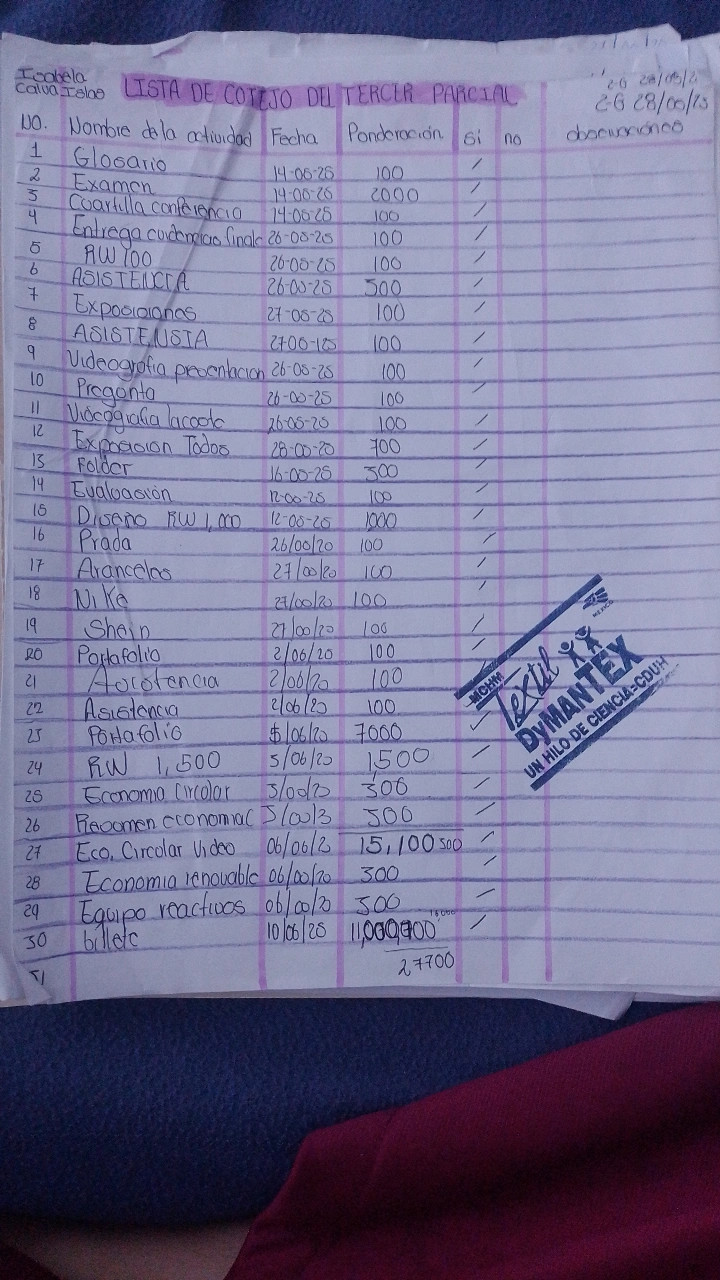 Isabela
Calva Islas
LISTA DE COTEJO DEL TERCER PARCIAL
2-G 28/05/2
2-G 28/00/25
NO. Nombre de la actividad Fecha Ponderación si no observaciónes
1 Glosario 14-06-25 100
2 Examen 14-06-25 2000
3 Cuartilla conferencio 14-06-25 100
4 Entrega evidencias finale 26-05-25 100
5 RW 700 26-05-25 100
6 ASISTENCIA 26-05-25 500
7 Exposicionas 27-05-25 100
8 ASISTENSIA 100
9 Videografia presentacion 26-05-25 100
10 Pregonta 26-05-25 100
11 26-05-25 100
12 Exposicion Todos 28-00-20 700
13 Folder 16-00-25 300
14 Evaluación 12-00-25 100
15 Diseño RW 1,000 12-06-25 1000
16 Prada 26/00/20 100
17 Arancelas 27/00/20 100
18 Nike 27/00/20 100
19 Shein 27/00/20 100
20 Portafolio 2/06/20 100
21 2/06/20 100
22 Asistencia 2/06/20 100
23 Portafolio /06/20 7000
24 RW 1,500 5/06/20 1500
25 Economia Circular 5/00/20 300
26 300
27 Eco. Circular Video 06/06/2 15,100 300
28 Economia renovable 06/00/20 300
29 Equipo reactivos 06/00/20 300
30 billete 10/06/25
27700
31
MCHM
Textil
MEXICO
DyMANTEX
UN HILO DE CIENCIA=CDUH